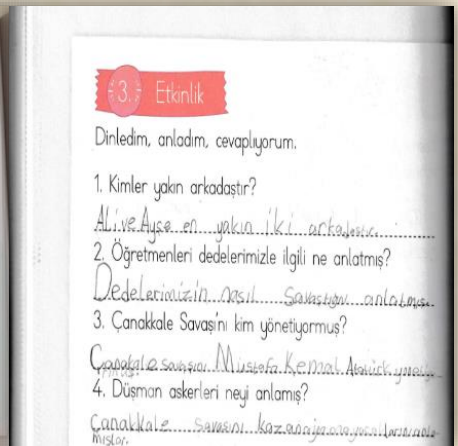 3. Etkinlik
Dinledim, anladım, cevaplıyorum.
1. Kimler yakın arkadaştır?
Ali ve Ayşe en yakın iki arkadaştır.
2. Öğretmenleri dedelerimizle ilgili ne anlatmış?
Dedelerimizin nasıl savaştığını anlatmış.
3. Çanakkale Savaşı'nı kim yönetiyormuş?
Çanakale savaşını Mustafa Kemal Atatürk
4. Düşman askerleri neyi anlamış?
Çanakkale savaşını
mışlar.